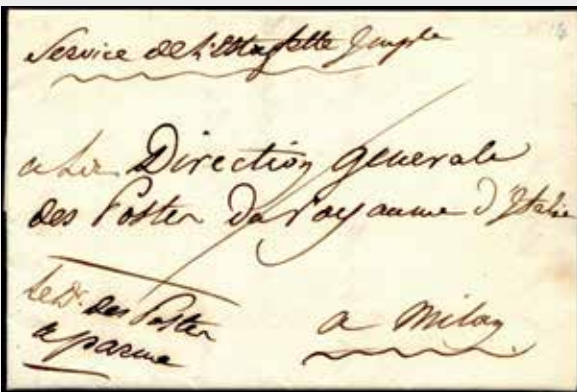 Service de L'Estafette Simple
a La Direction generale
des Postes du Royaume d'Italie
Le Dr. des Postes
a parme
a Milan